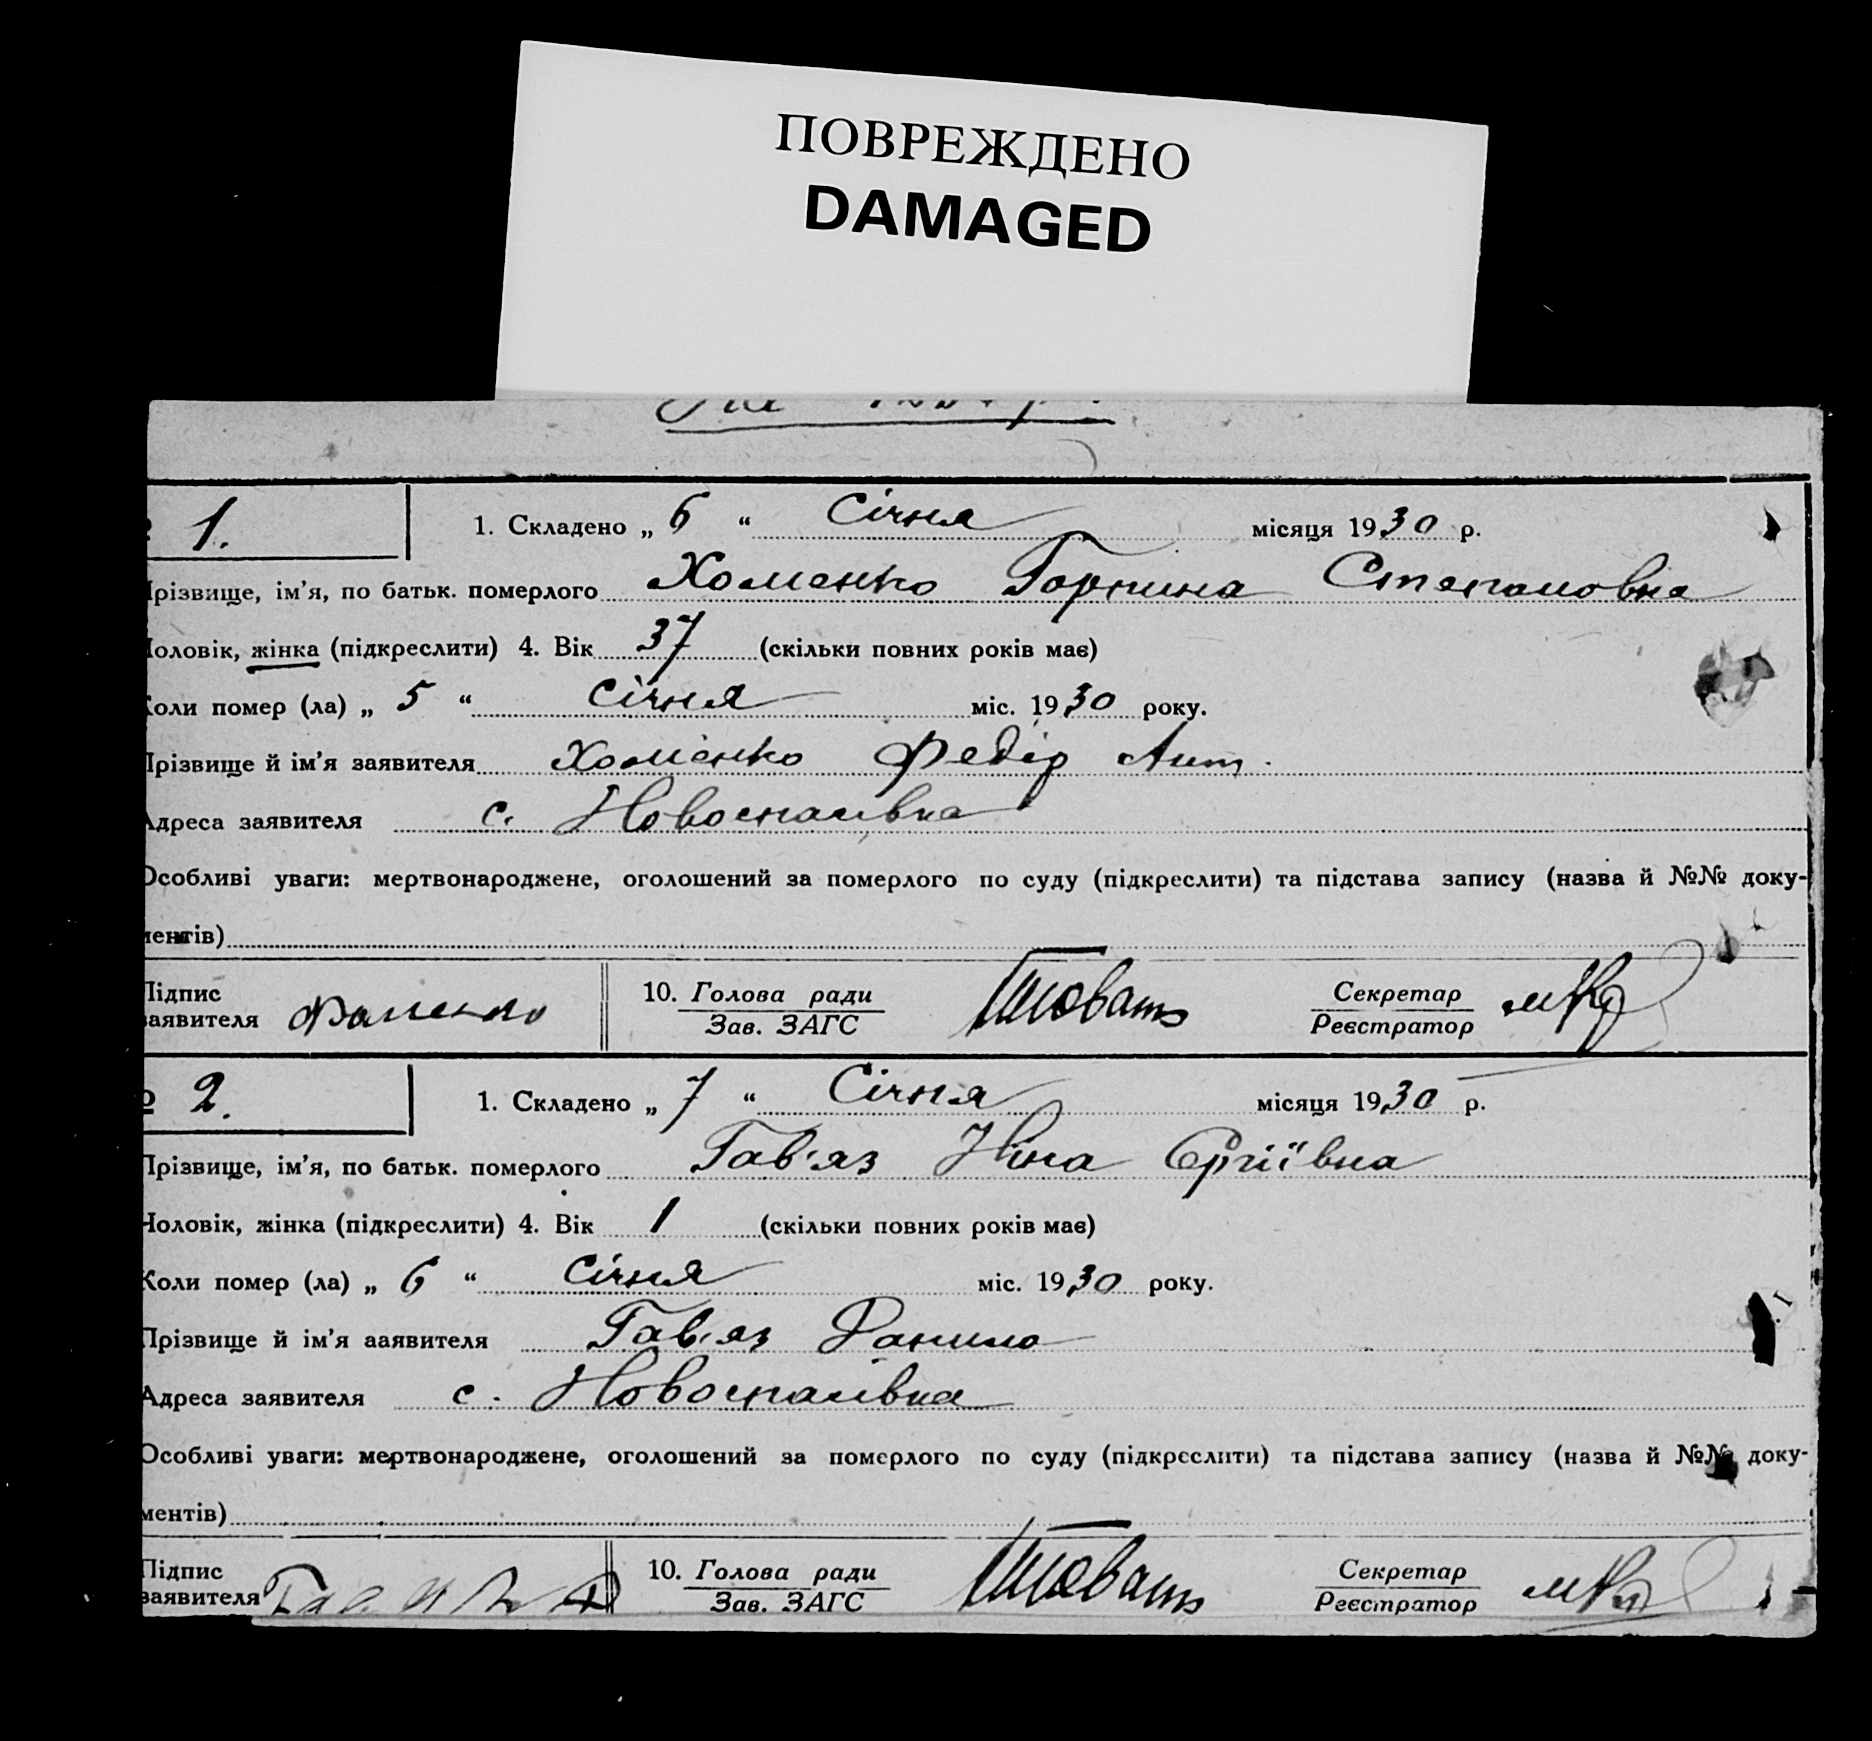 ПОВРЕЖДЕНО
DAMAGED
1. 1. Складено „ 6 “ Січня місяця 1930 р.
Прізвище, ім'я, по батьк. померлого Хоменко Горпина Степановна
Чоловік, жінка (підкреслити) 4. Вік 37 (скільки повних років має)
Коли помер (ла) „ 5 “ Січня міс. 1930 року.
Прізвище й ім'я заявителя Хоменко Федір Ант.
Адреса заявителя с. Новоспасівка
Особливі уваги: мертвонароджене, оголошений за померлого по суду (підкреслити) та підстава запису (назва й №№ доку-
ментів)
Підпис 10. Голова ради Секретар
заявителя Зав. ЗАГС Реєстратор
2. 1. Складено „ 7 “ Січня місяця 1930 р.
Прізвище, ім'я, по батьк. померлого Гав'яз Ніна Сргіївна
Чоловік, жінка (підкреслити) 4. Вік 1 (скільки повних років має)
Коли помер (ла) „ 6 “ Січня міс. 1930 року.
Прізвище й ім'я ааявителя Гав'яз Данило
Адреса заявителя с. Новоспасівка
Особливі уваги: мертвонароджене, оголошений за померлого по суду (підкреслити) та підстава запису (назва й №№ доку-
ментів)
Підпис 10. Голова ради Секретар
заявителя Зав. ЗАГС Реєстратор